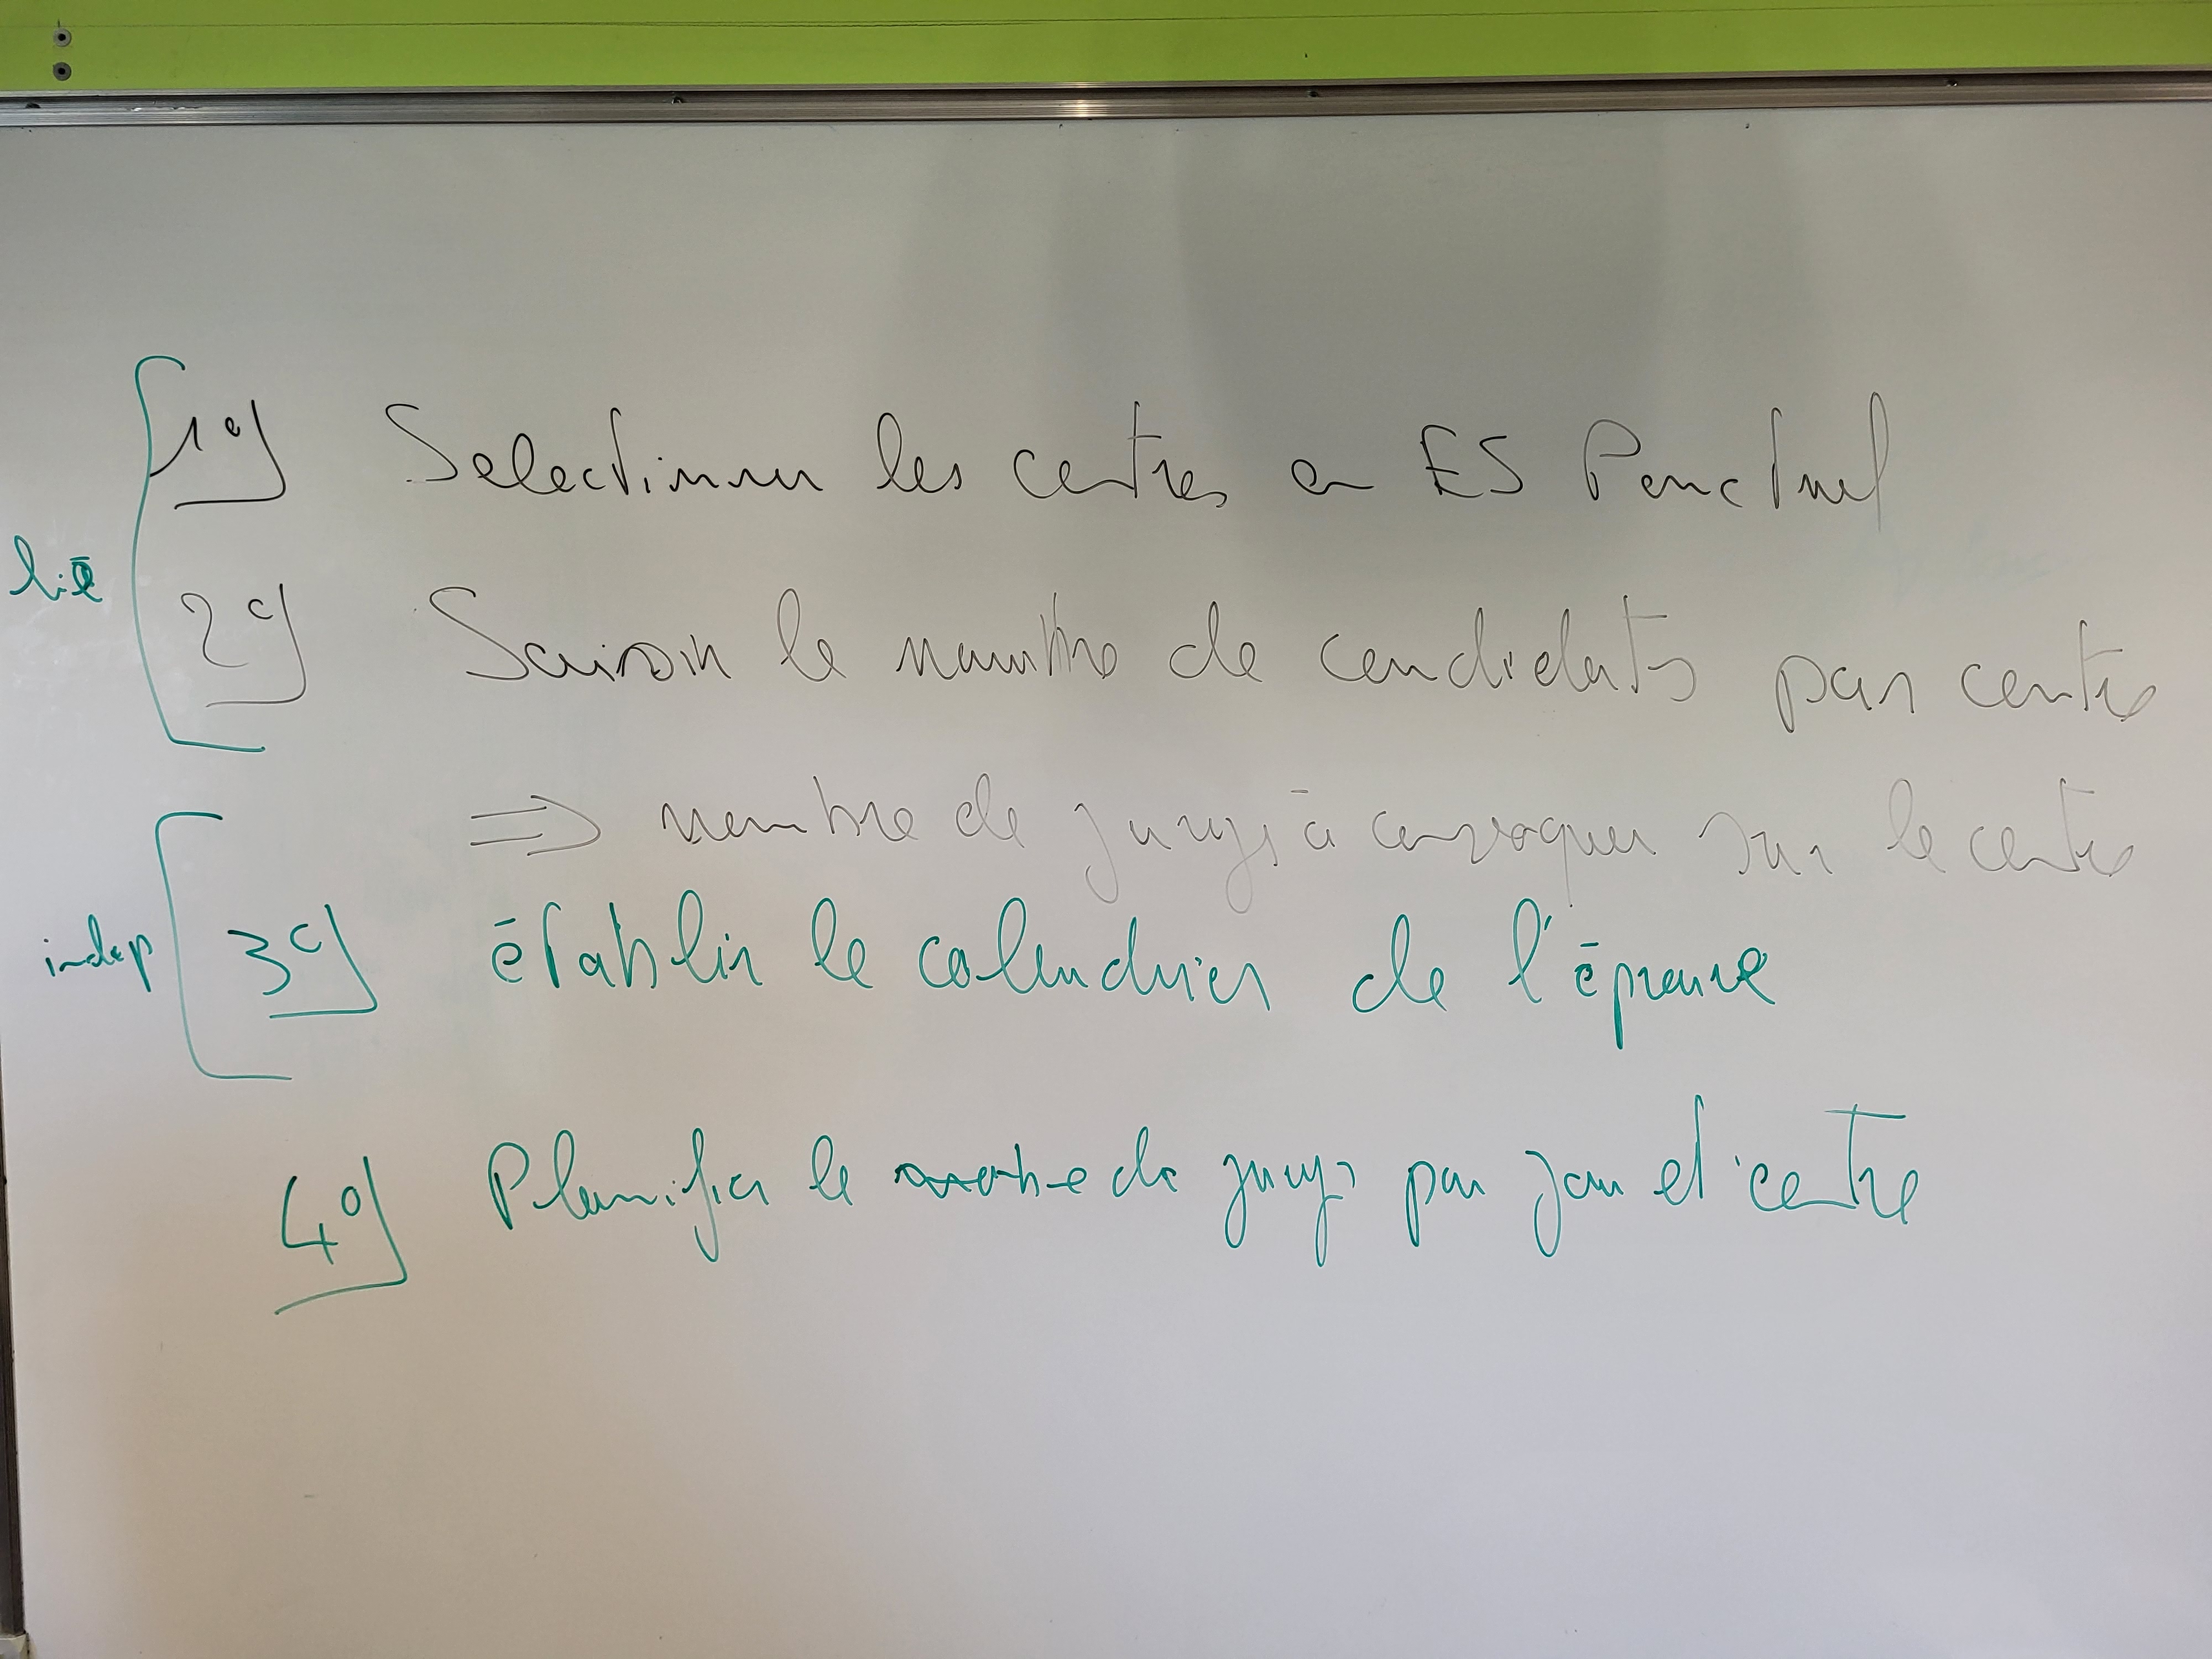 1°) Selectionner les centres en ES Ponctuel
lié
2°) Saisir le nombre de candidats par centre
⇒ nombre de jurys à convoquer sur le centre
indep
3°) établir le calendrier de l'épreuve
4°) Planifier le nombre de jurys par jour et centre